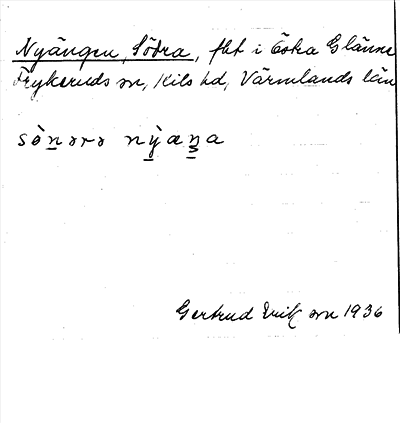 Nyängen, Södra, fht i Östra Glänne
Frykeruds sn, Kils hd, Värmlands län
sònərə nỳæŋa
Gertrud Erik sn 1936